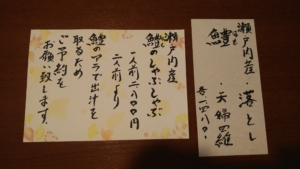 瀬戸内産
鱧のしゃぶしゃぶ
一人前二八〇〇円
二人前より
鱧のアラで出汁を
取るため
ご予約を
お願い致します。
瀬戸内産
鱧 ・落とし
・天婦羅
各一四八〇、